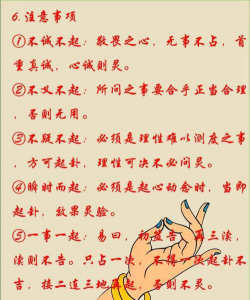 6.注意事项
①不诚不起：敬畏之心，无事不占，首
重真诚，心诚则灵。
②不义不起：所问之事要合乎正当合理
，否则无用。
③不疑不起：必须是理性难以测度之事
，方可起卦，理性可决不必问灵。
④瞬时而起：必须是起心动念时，当即
起卦，效果灵验。
⑤一事一起：易曰，初筮告，再三渎，
渎则不告。只占一次，不得一日起卦不
吉，接二连三地再起，否则不灵。